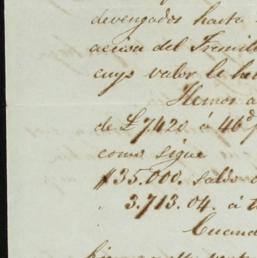 devengados hasta
acusa del Tremil
cuyo valor le he
Hemos a
de £7420 á 46⅞
como sigue
$35.000. saldo
3.713.04. á t
Cuand